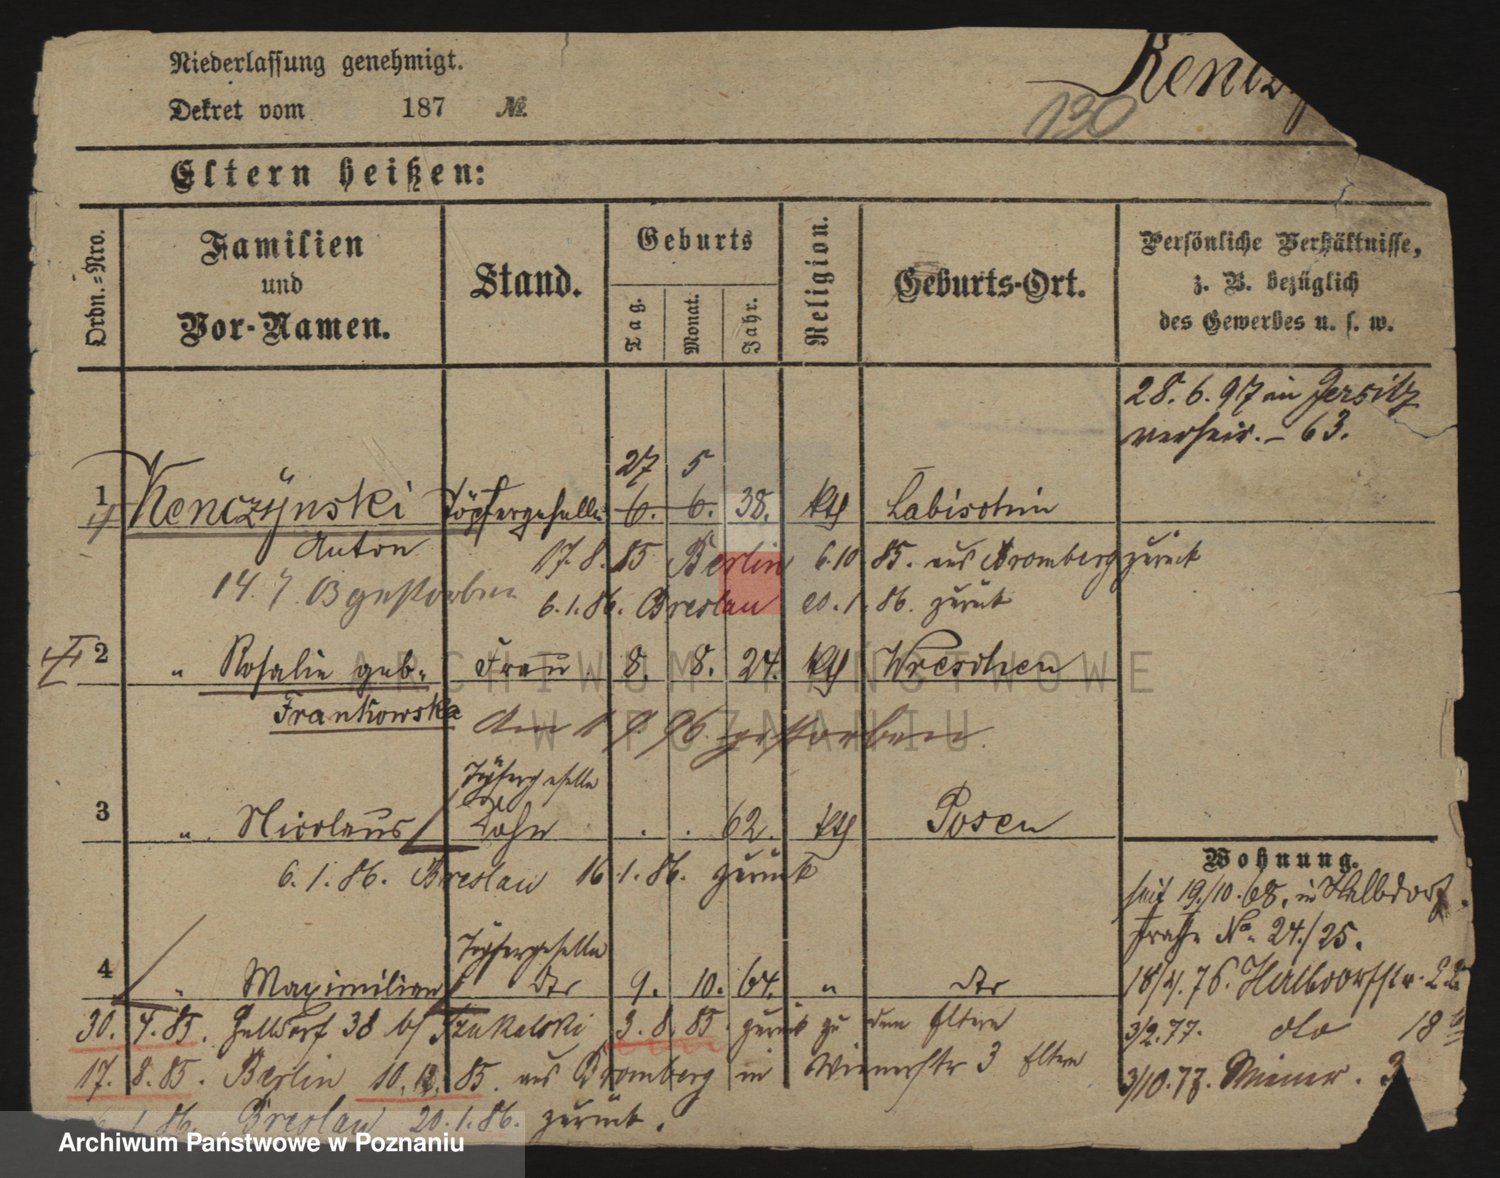 Niederlassung genehmigt.
Dekret vom 187 №.
130
Eltern heißen:
Ordn.-Nro.
Familien
und
Vor-Namen.
Stand.
Geburts
Tag.
Monat.
Jahr.
Religion.
Geburts-Ort.
Persönliche Verhältnisse,
z. B. bezüglich
des Gewerbes u. s. w.
28. 6. 97 in Jersitz
verheir. – 63.
27 5
1 Kenczÿnski Töpfergeselle 6. 6. 38. kth Labischin
Anton 17. 8. 85 Berlin 6. 10 85. aus Bromberg zurück
14. 7. 03 gestorben 6. 1. 86. Breslau 20. 1. 86. zurück
2 " Rosalie geb. Frau 8. 8. 24. kth Wreschen
Frankowska gestorben
ARCHIWUM PAŃSTWOWE
W POZNANIU
Töpfergeselle
3 " Nicolaus Sohn . . 62. kth Posen
6. 1. 86. Breslau 16 1. 86. zurück
Wohnung.
seit 19/10. 68. in Halbdorf
straße No. 24/25.
Töpfergeselle
4 " Maximilian dto 9. 10. 64. " dto
18/4. 76. Halbdorfstr.
30. 4. 85. Halbdorf 38 b/ Szukalski 3. 8. 85. zurück zu den Eltern
3/2. 77. dto 18
17. 8. 85. Berlin 10. 12. 85. aus Bromberg in Wienerstr 3 Eltern
3/10. 77. Wiener. 3
1. 86. Breslau 20. 1. 86. zurück.
Archiwum Państwowe w Poznaniu